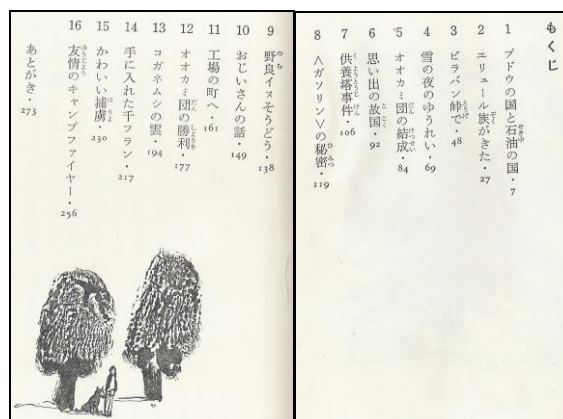 もくじ
1 ブドウの国と石油の国・7
2 エリュール族がきた・27
3 ビラバン峠で・48
4 雪の夜のゆうれい・69
5 オオカミ団の結成・84
6 思い出の故国・92
7 供養塔事件・106
8 <ガソリン>の秘密・119
9 野良イヌそうどう・138
10 おじいさんの話・149
11 工場の町へ・161
12 オオカミ団の勝利・177
13 コガネムシの雲・194
14 手に入れた千フラン・217
15 かわいい捕虜・230
16 友情のキャンプファイヤー・256
あとがき・273